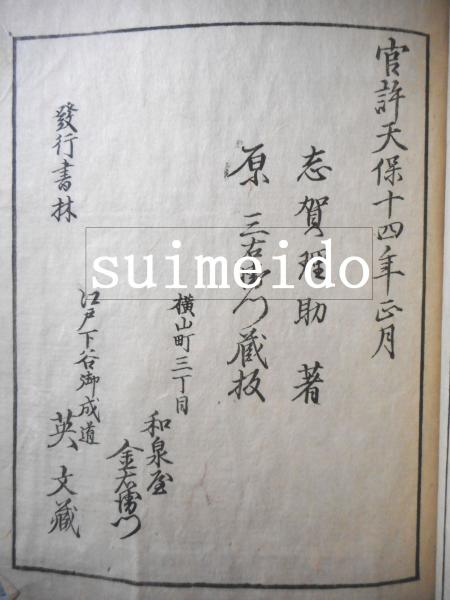 官許天保十四年正月
志賀理助 著
原 三右衛門 蔵板
横山町三丁目
和泉屋
金右衛門
發行書林
江戸下谷御成道
英 文藏
suimeido